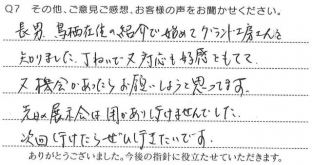 Q7 その他、ご意見ご感想、お客様の声をお聞かせください。
長男 鳥栖在住の紹介で始めてグランド工房さんを
知りました。丁ねいで又対応も好感もてて
又機会があったらお願いしようと思ってます。
先日の展示会は用があり行けませんでした。
次回行けたらぜひ行きたいです。
ありがとうございました。今後の指針に役立たせていただきます。